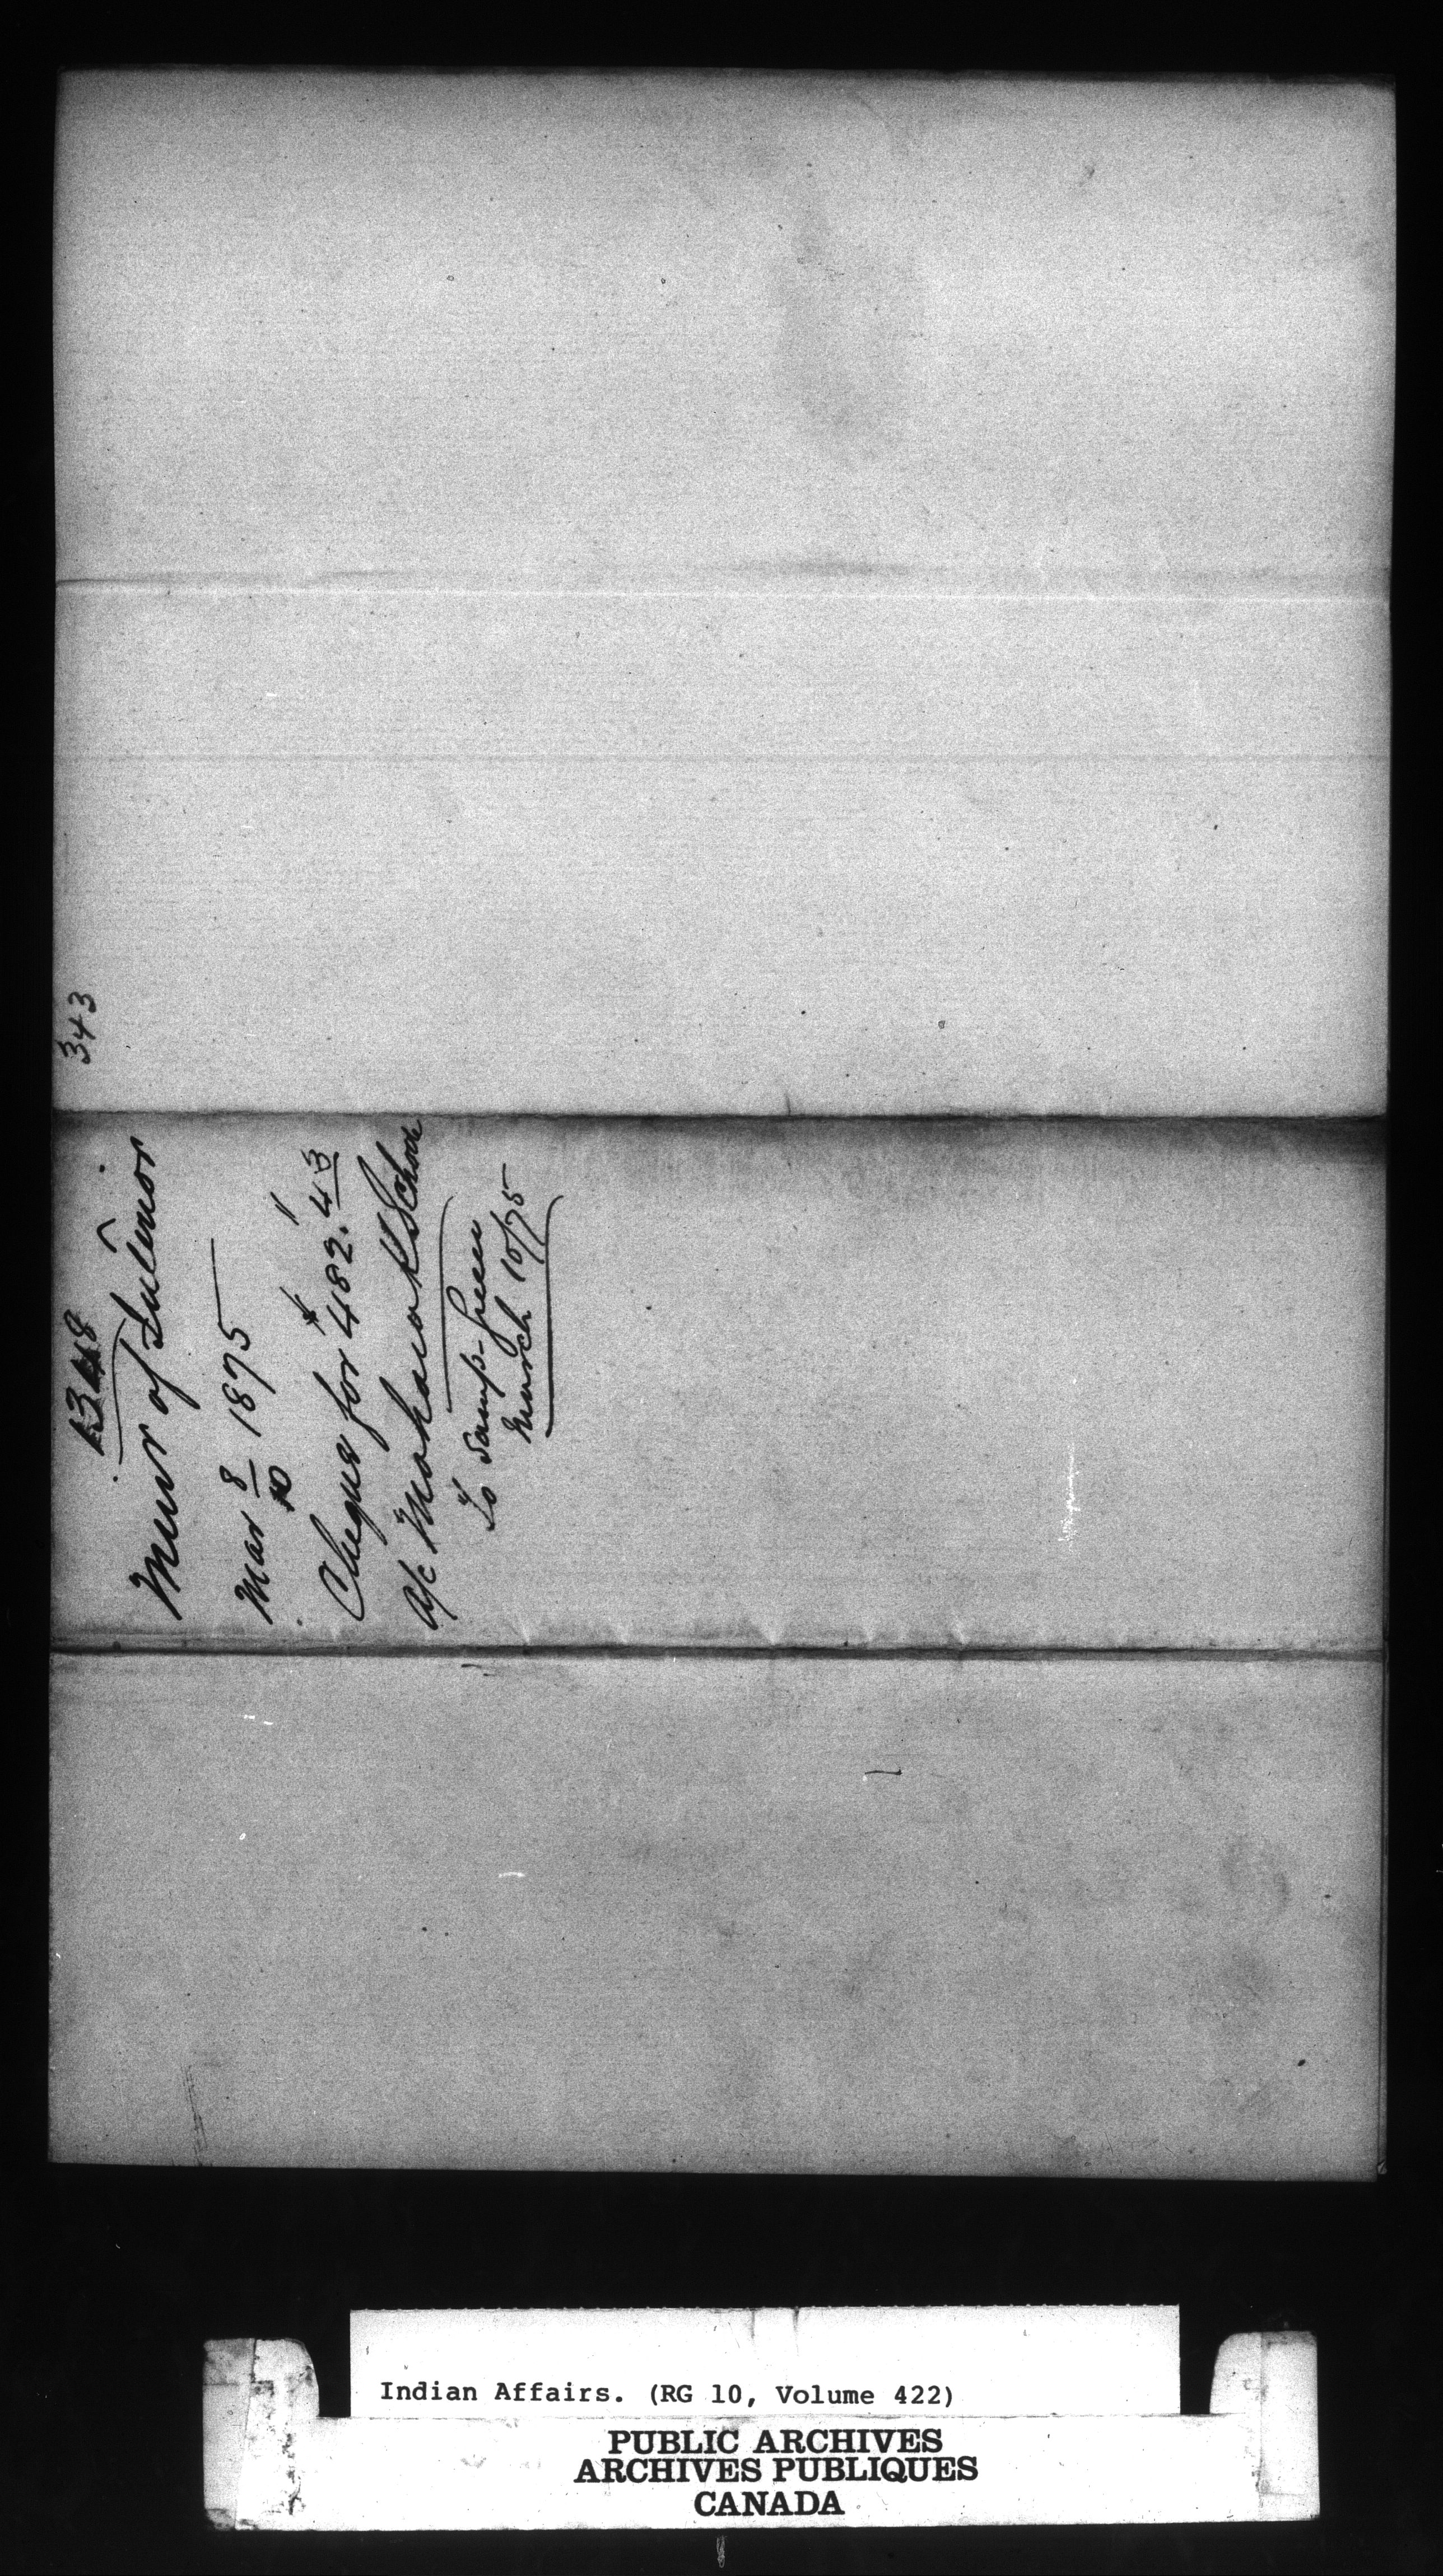 343
1348
Minr of Interior
Mar 8/10 1875
Cheque for $482.43
a/c Mohawk School
To
March 10/75
Indian Affairs. (RG 10, Volume 422)
PUBLIC ARCHIVES
ARCHIVES PUBLIQUES
CANADA